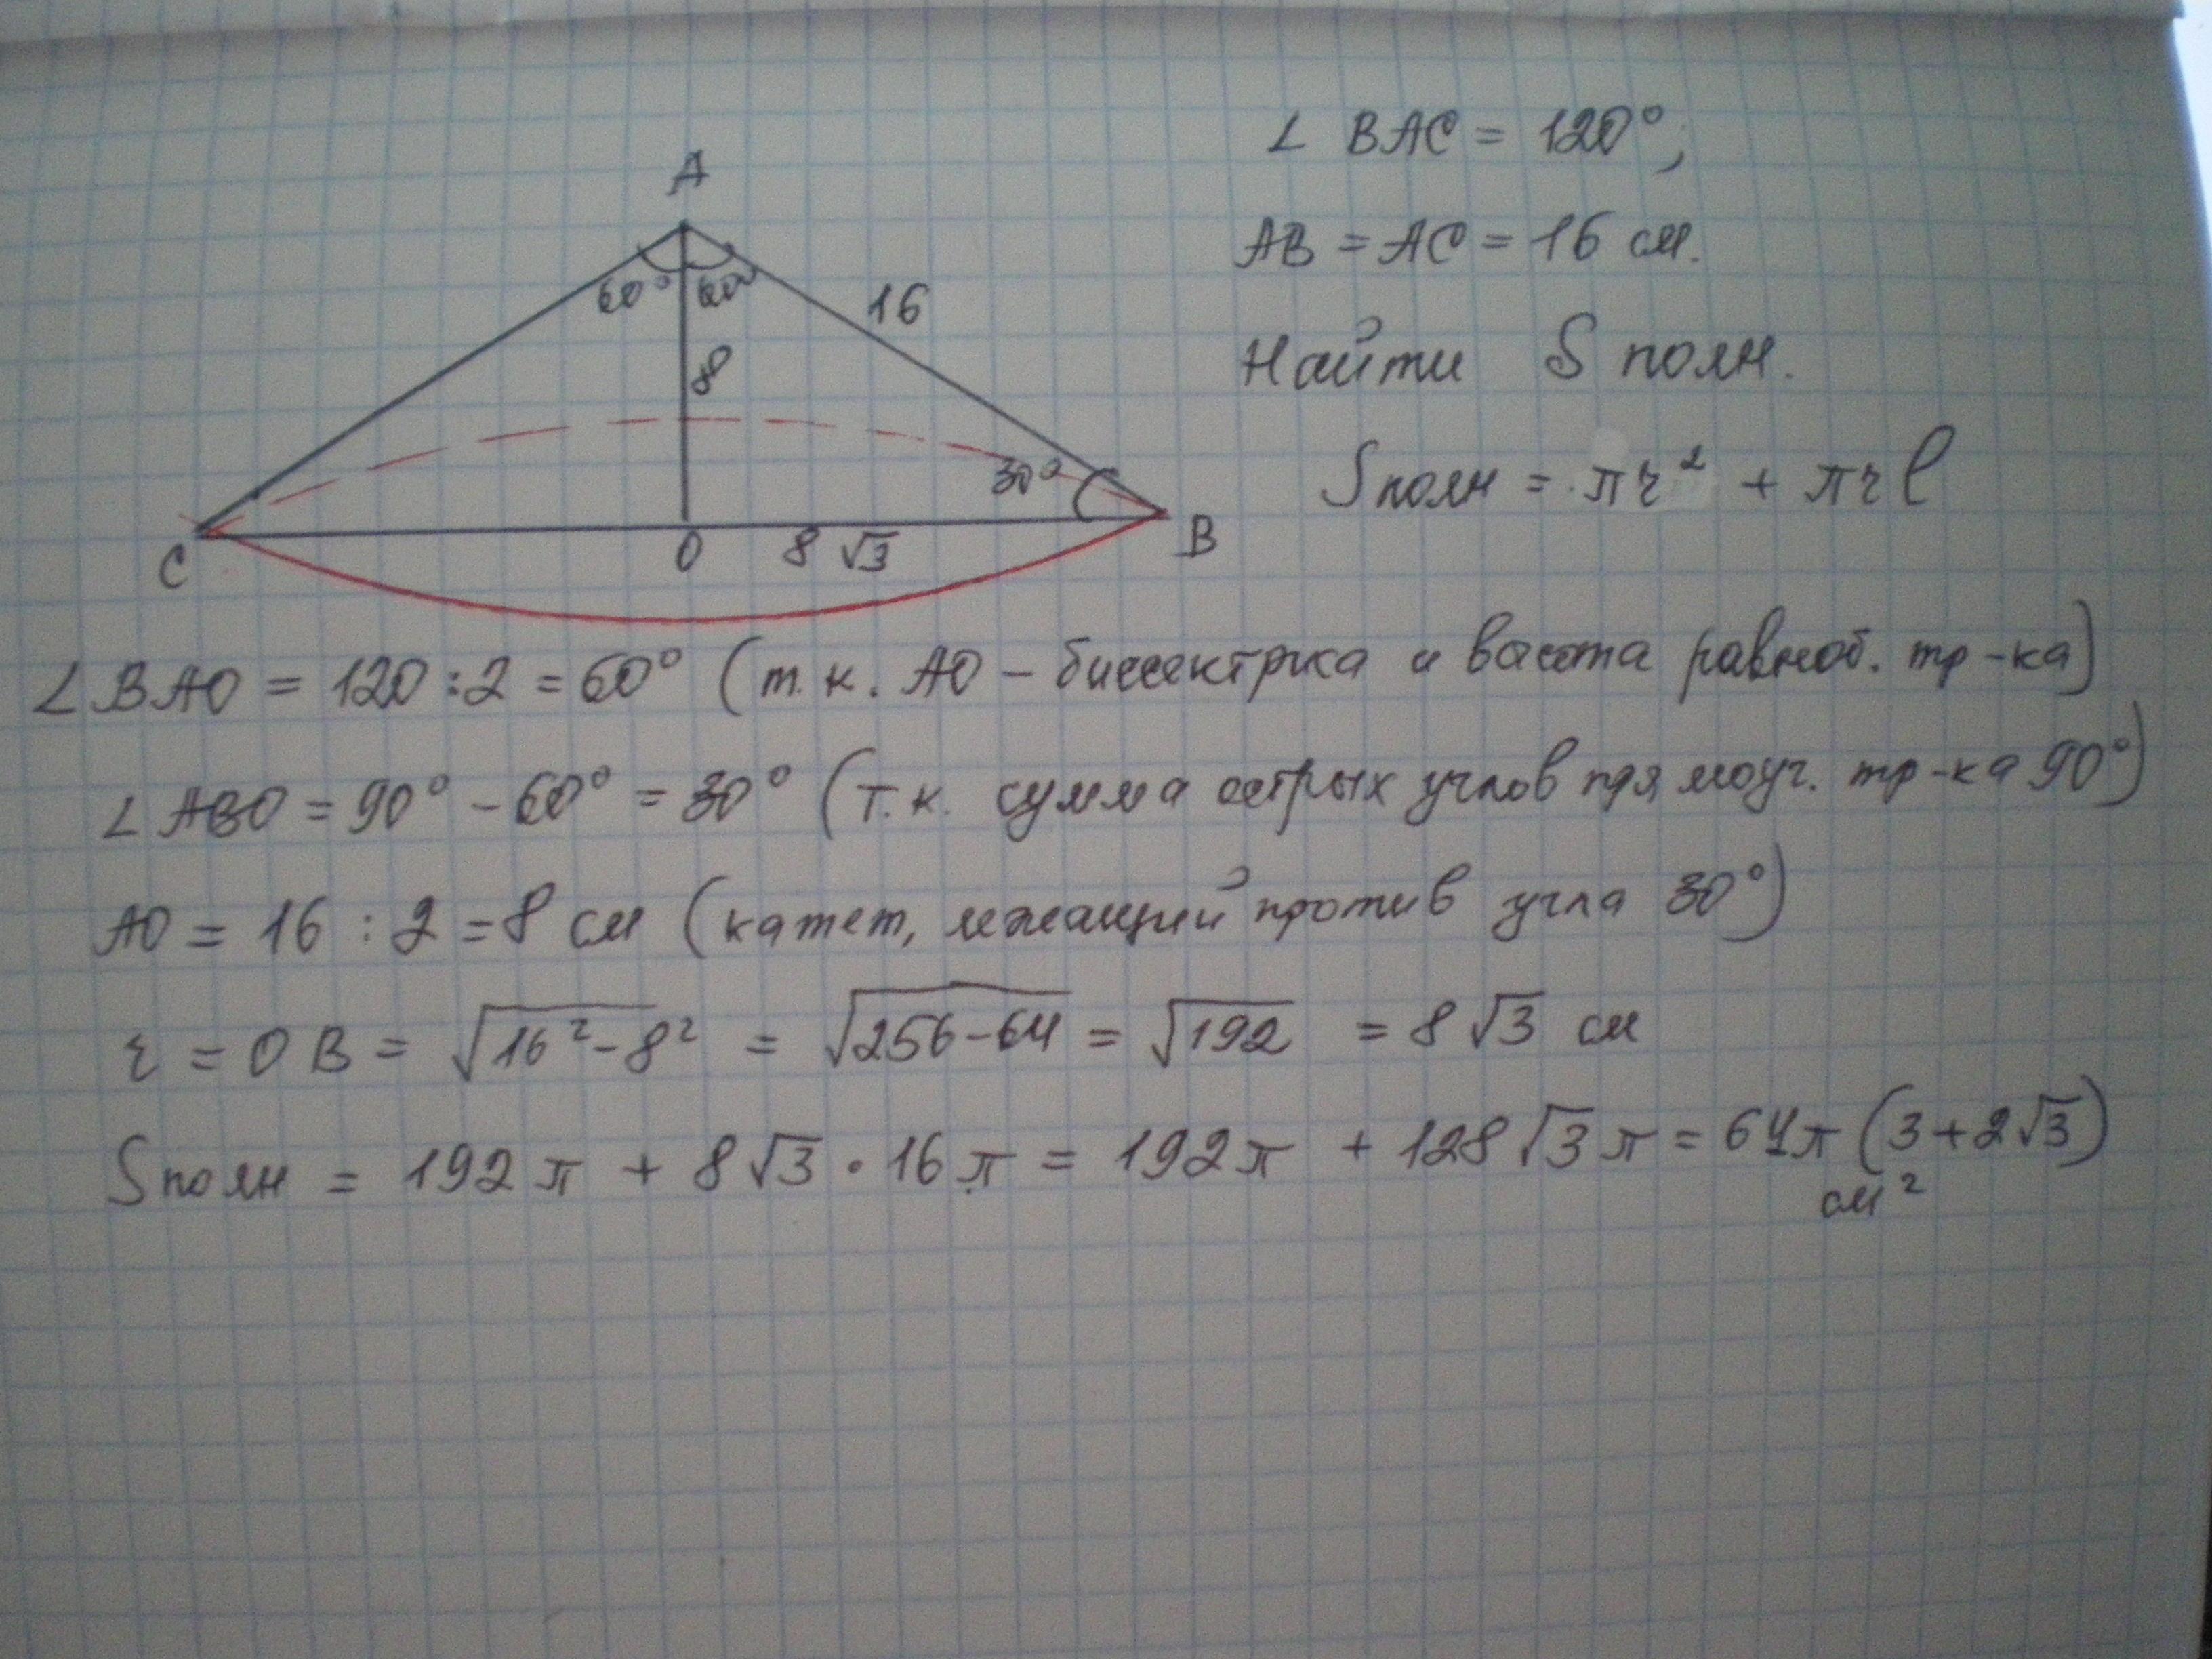 A
60° 60°
16
8
30°
C
O
8 √3
B
∠ BAC = 120°;
AB = AC = 16 см.
Найти S полн.
Sполн = πr² + πrl
∠BAO = 120 : 2 = 60° (т.к. AO – биссектриса и высота равноб. тр-ка)
∠ABO = 90° – 60° = 30° (т.к. сумма острых углов прямоуг. тр-ка 90°)
AO = 16 : 2 = 8 см (катет, лежащий против угла 30°)
r = OB = √16² – 8² = √256 – 64 = √192 = 8 √3 см
Sполн = 192π + 8√3 · 16π = 192π + 128√3π = 64π (3 + 2√3)
см²